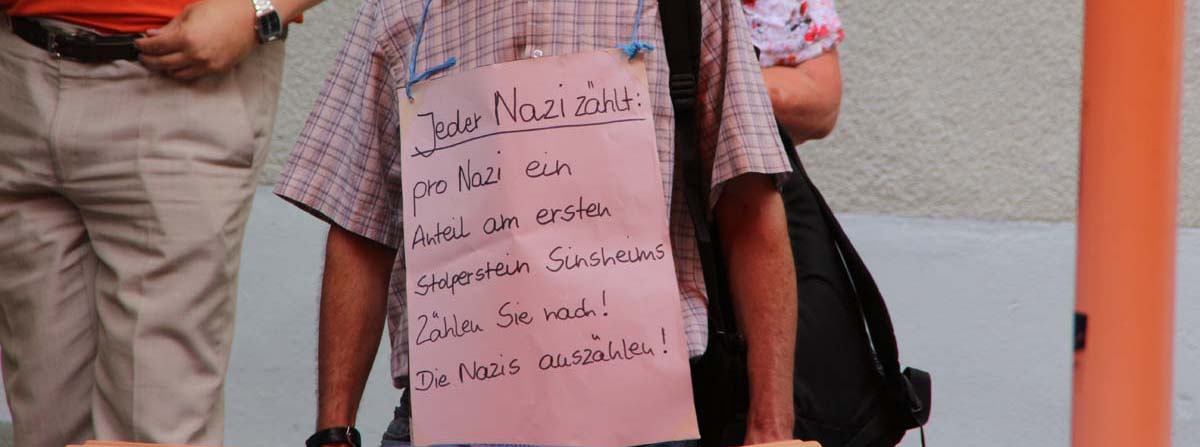 Jeder Nazi zählt:
pro Nazi ein
Anteil am ersten
Stolperstein Sinsheims
Zählen Sie nach!
Die Nazis auszählen!